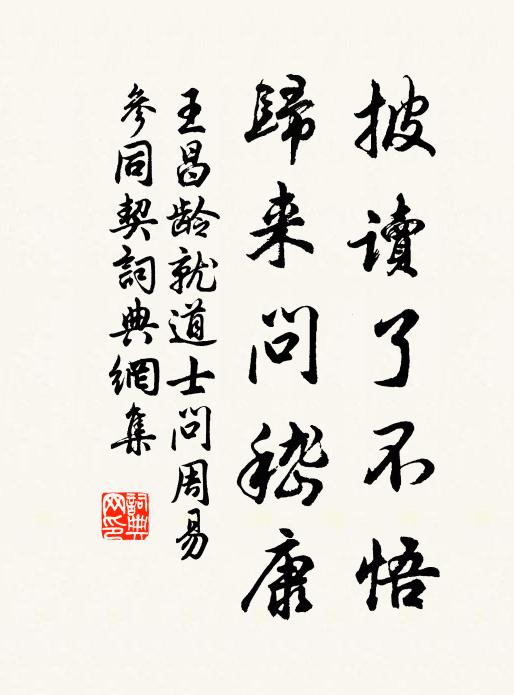 披讀了不悟
歸来問嵇康
王昌龄就道士問周易
參同契詞典網集
詞典网印